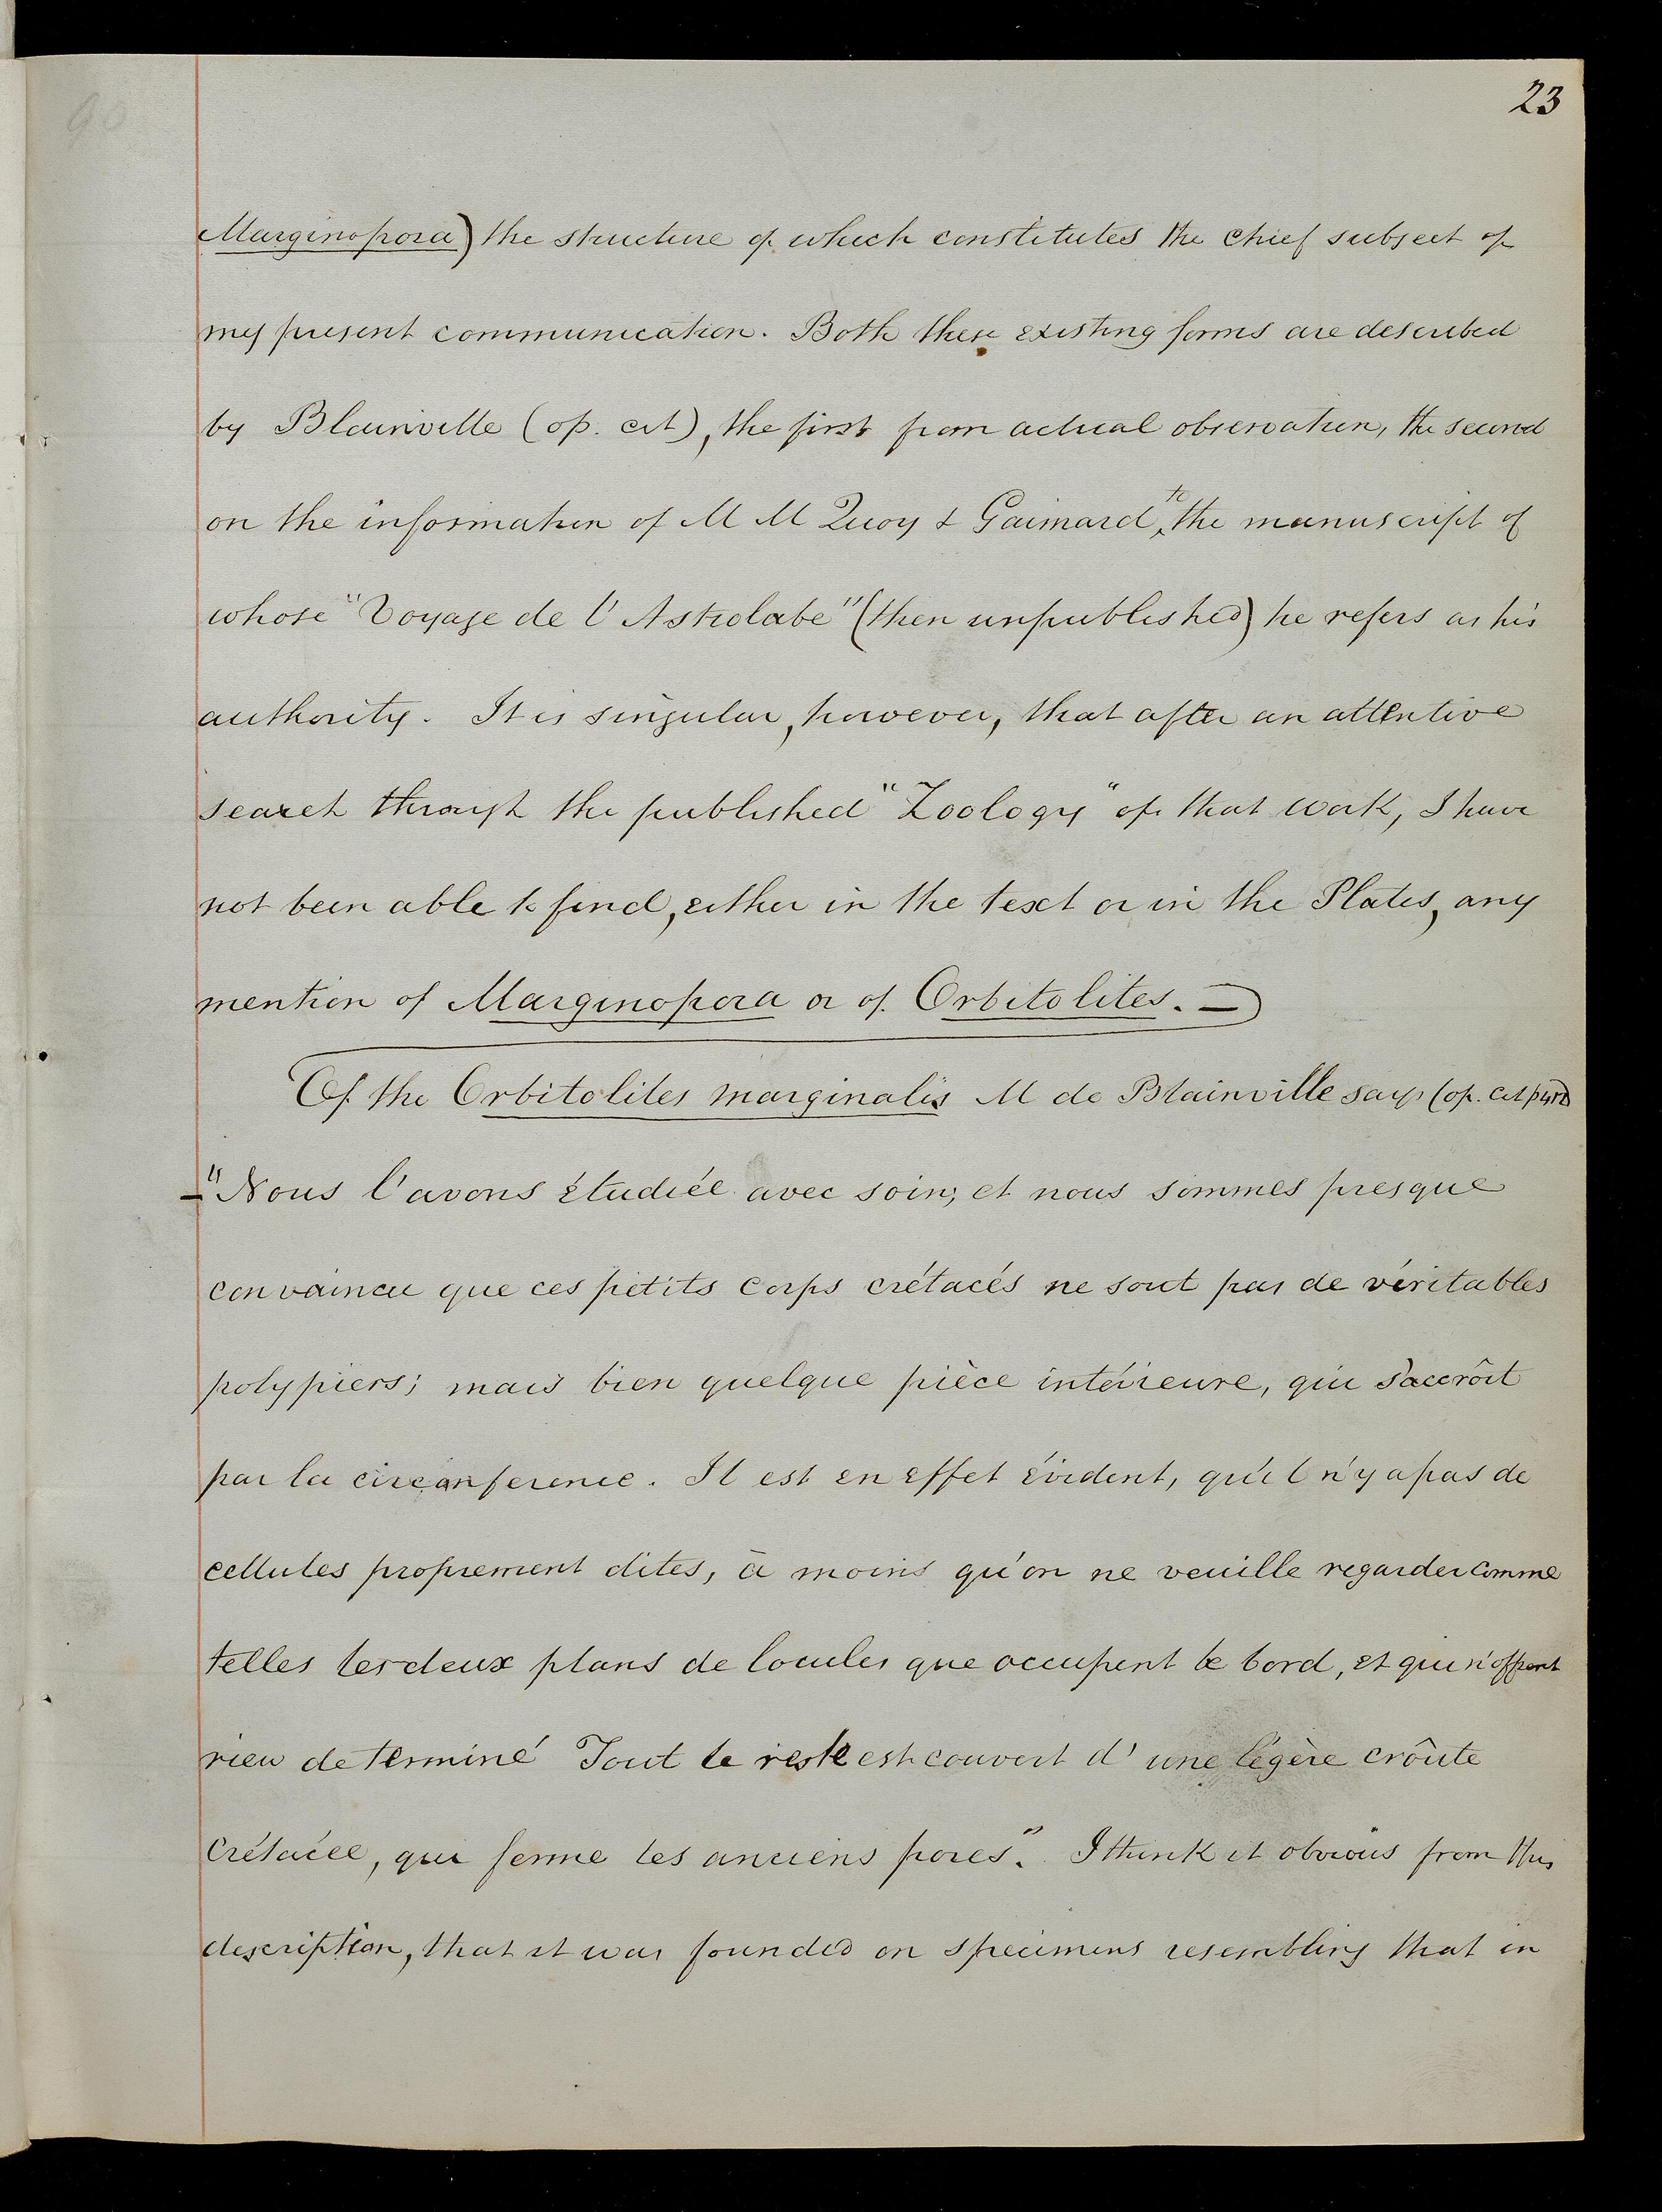 90
23
Marginopora) the structure of which constitutes the chief subject of
my present communication. Both these existing forms are described
by Blainville (op. cit), the first from actual observation, the second
on the information of M M Quoy & Gaimard, to the manuscript of
whose "Voyage de l'Astrolabe" (then unpublished) he refers as his
authority. It is singular, however, that after an attentive
search through the published "Zoology" of that work, I have
not been able to find, either in the text or in the Plates, any
mention of Marginopora or of Orbitolites. —
Of the Orbitolites marginalis M de Blainville says (op. cit p
— "Nous l'avons étudiée avec soin, et nous sommes presque
convaincu que ces petits corps crétacés ne sont pas de véritables
polypiers; mais bien quelque pièce intérieure, qui s'accrôit
par la circonference. Il est en effet évident, qu'il n'y a pas de
cellules proprement dites, à moins qu'on ne veuille regarder comme
telles les deux plans de locules que occupent le bord, et qui n'offrent
rien determiné Tout le reste est couvert d'une légère crôute
crétacée, qui ferme les anciens pores". I think it obvious from this
description, that it was founded on specimens resembling that in